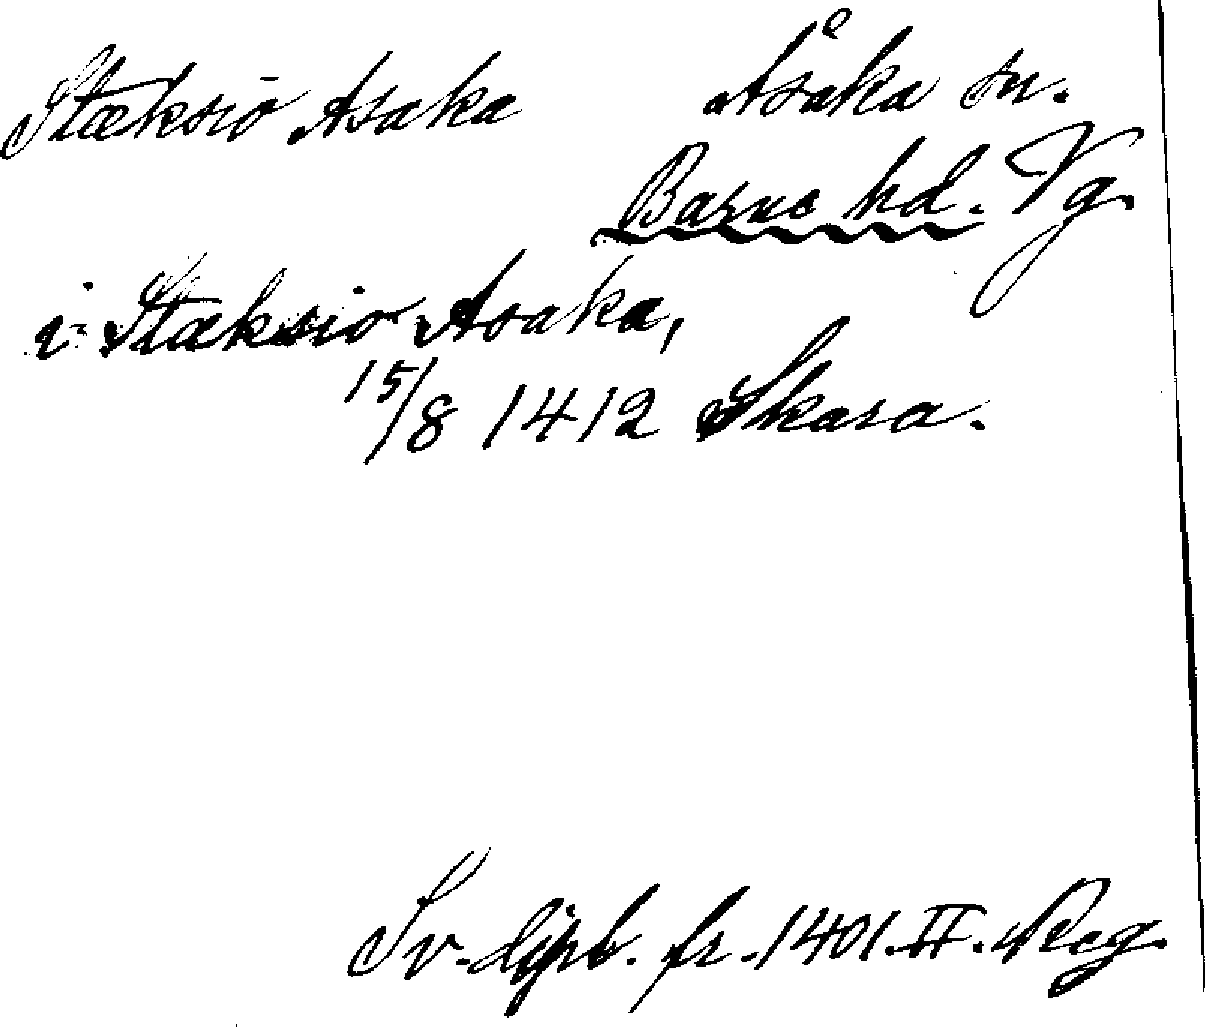 Stæksiö Asaka Åsaka sn.
Barne hd. Vg.
i Stæksio Asaka,
15/8 1412 Skara.
Sv. dipl. fr. 1401. II. Reg.